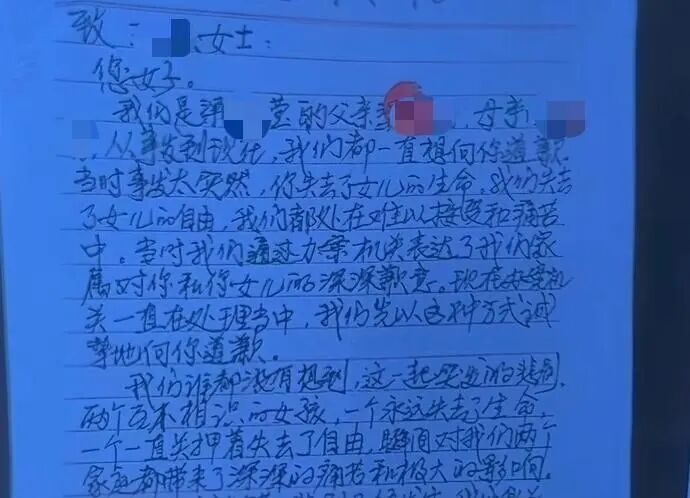 致：女士：
您好。
我们是梁莹的父亲梁，母亲
，从事发到现在，我们都一直想向你道歉
当时事发太突然，你失去了女儿的生命。我们失去
了女儿的自由，我们都处在难以接受和痛苦
中。当时我们通过办案机关表达了我们家
属对你和你女儿的深深歉意。现在办案机
关一直在处理当中，我们先以这种方式诚
挚地向你道歉。
我们谁都没有想到，这一起突发的悲剧，
两个互不相识的女孩，一个永远失去了生命，
一个一直关押着失去了自由，瞬间对我们两个
家庭都带来了深深的痛苦和极大的影响。